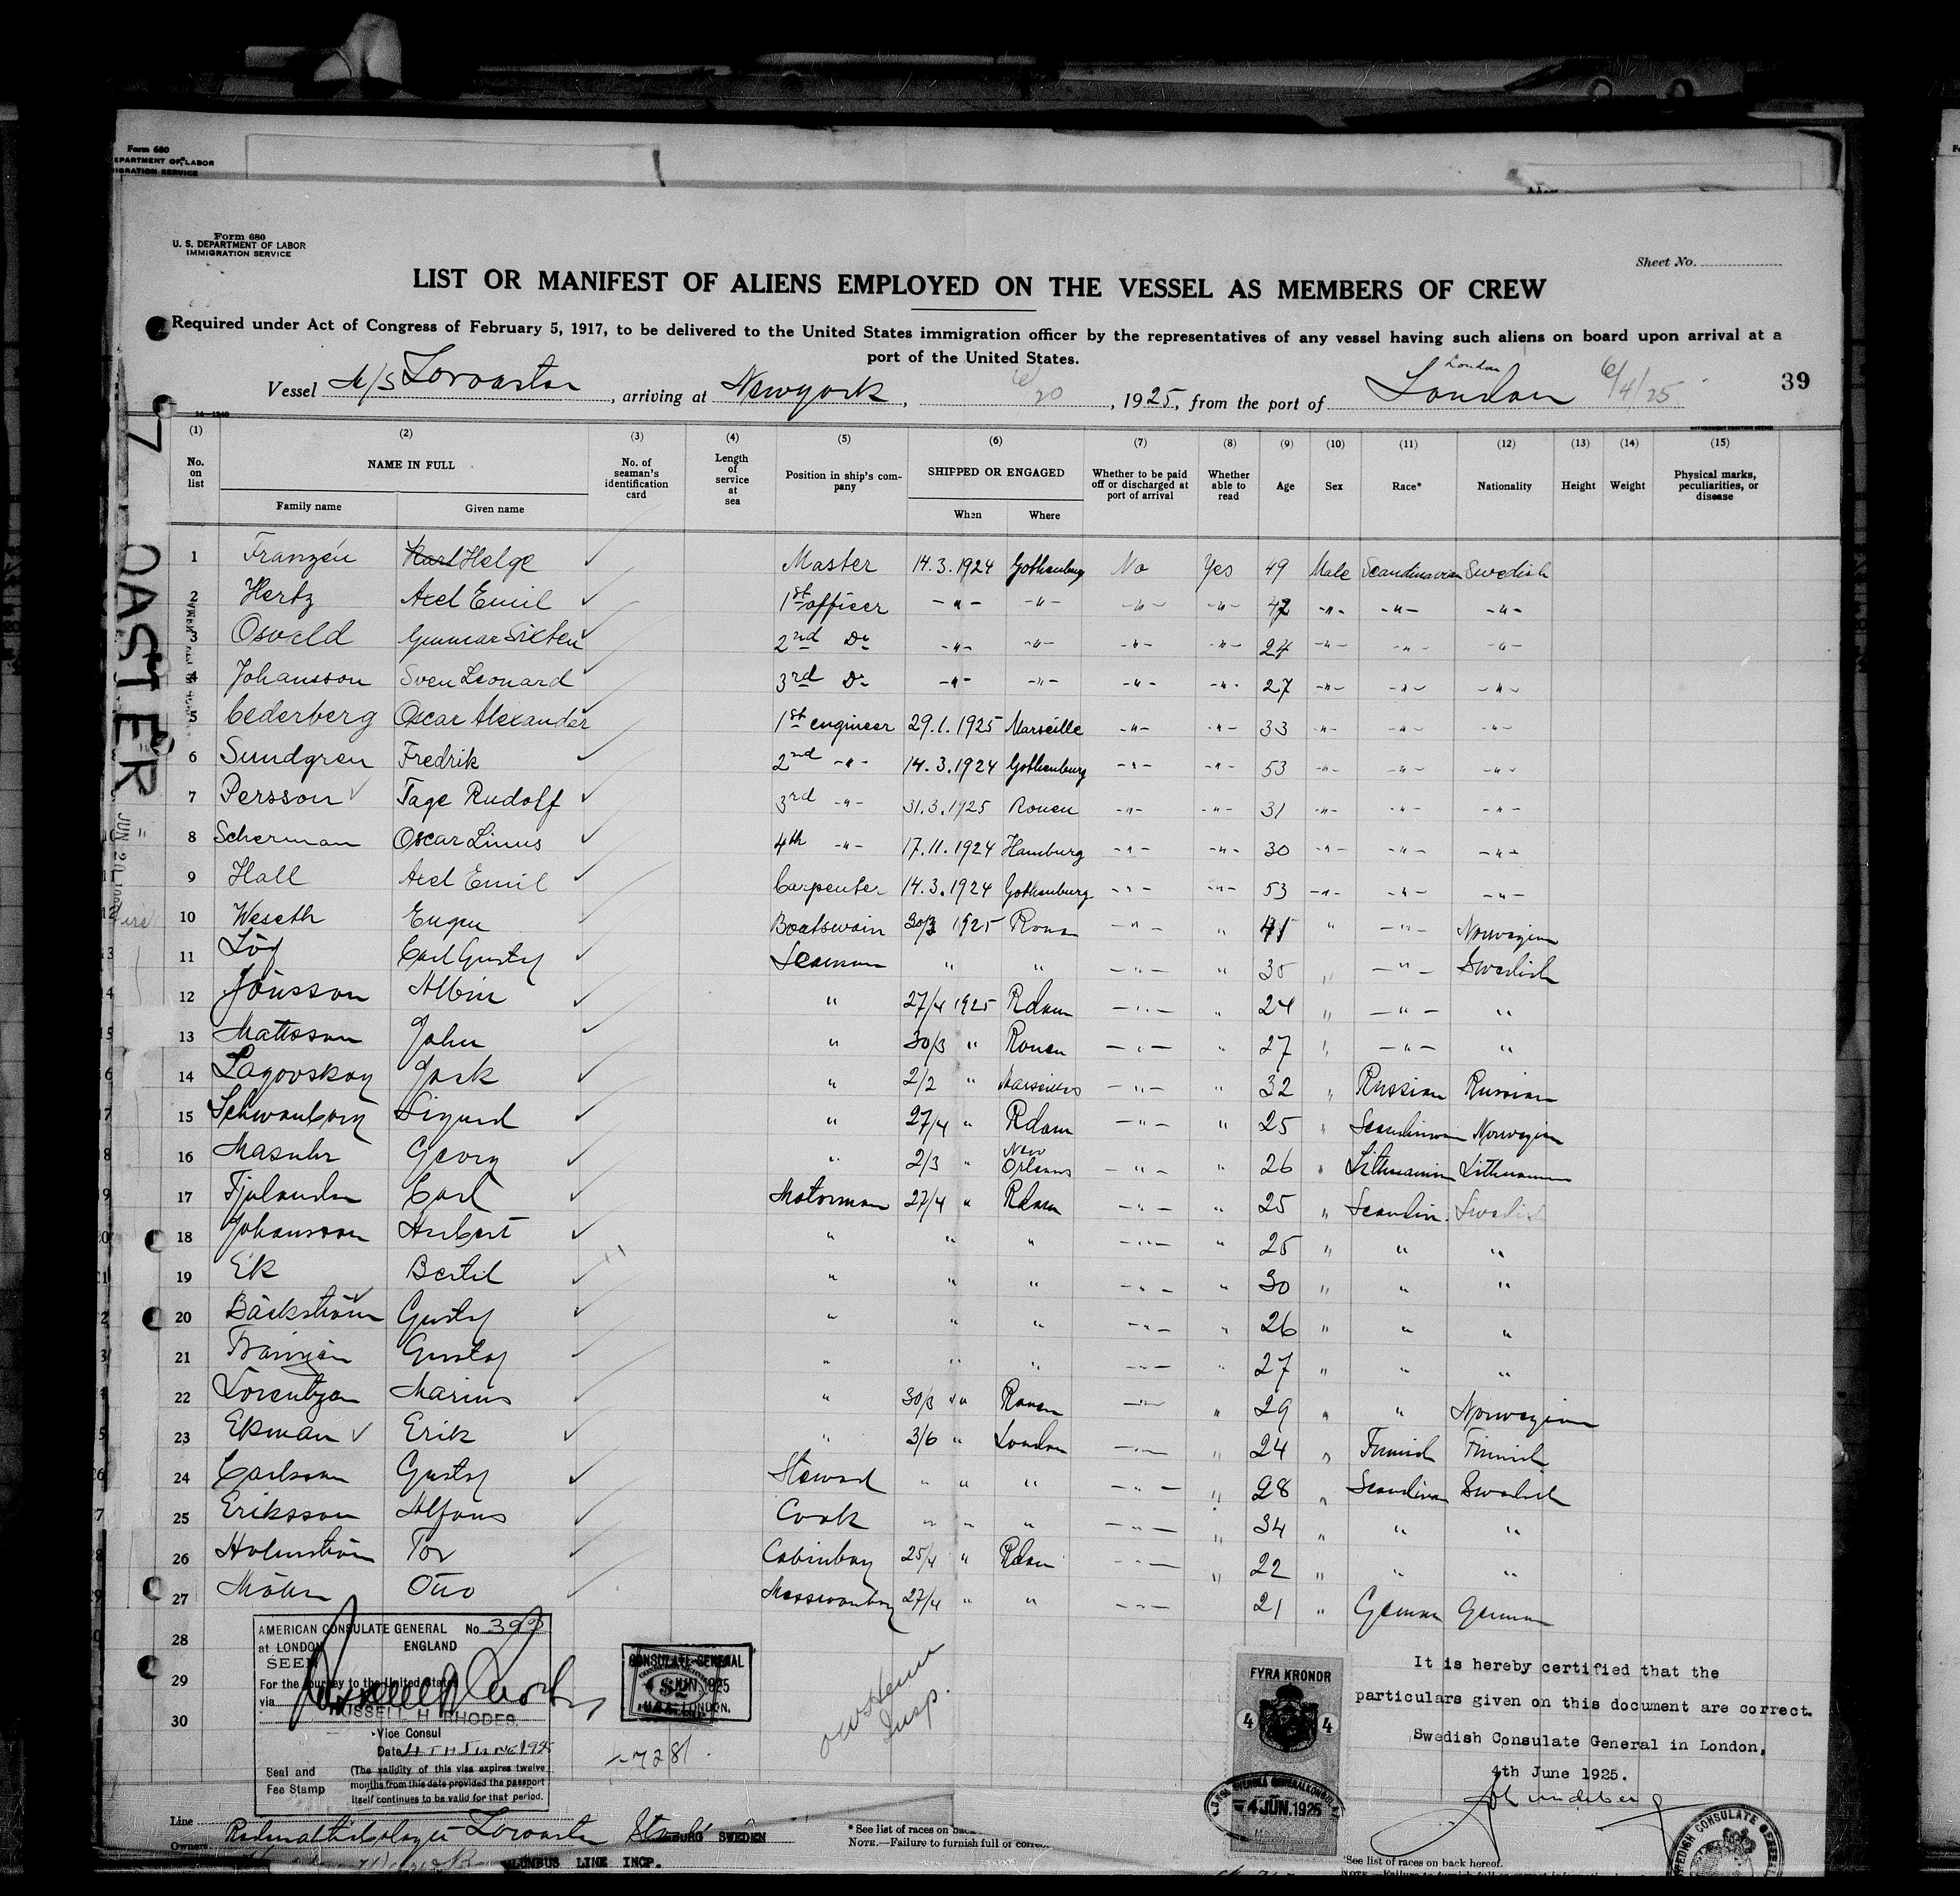 Form 680
EPARTMENT OF LABOR
IGRATION SERVICE
Form 680
U. S. DEPARTMENT OF LABOR
IMMIGRATION SERVICE
Sheet No.
LIST OR MANIFEST OF ALIENS EMPLOYED ON THE VESSEL AS MEMBERS OF CREW
Required under Act of Congress of February 5, 1917, to be delivered to the United States immigration officer by the representatives of any vessel having such aliens on board upon arrival at a
port of the United States.
Vessel M/S Zoroaster, arriving at Newyork, 6/20, 1925, from the port of London London 6/4/25
39
14—1240
(1) (2) (3) (4) (5) (6) (7) (8) (9) (10) (11) (12) (13) (14) (15)
No. on list NAME IN FULL Family name Given name No. of seaman's identification card Length of service at sea Position in ship's company SHIPPED OR ENGAGED When Where Whether to be paid off or discharged at port of arrival Whether able to read Age Sex Race* Nationality Height Weight Physical marks, peculiarities, or disease
1 Franzén Karl Helge Master 14.3.1924 Gothenburg No Yes 49 Male Scandinavian Swedish
2 Hertz Axel Emil 1st officer -"- -"- -"- -"- 42 -"- -"- -"-
3 Osvald Gunnar Sixten 2nd Do -"- -"- -"- -"- 24 -"- -"- -"-
4 Johansson Sven Leonard 3rd Do -"- -"- -"- -"- 27 -"- -"- -"-
5 Cederberg Oscar Alexander 1st engineer 29.1.1925 Marseille -"- -"- 33 -"- -"- -"-
6 Sundgren Fredrik 2nd -"- 14.3.1924 Gothenburg -"- -"- 53 -"- -"- -"-
7 Persson Tage Rudolf 3rd -"- 31.3.1925 Rouen -"- -"- 31 -"- -"- -"-
8 Scherman Oscar Linus 4th -"- 17.11.1924 Hamburg -"- -"- 30 -"- -"- -"-
9 Hall Axel Emil Carpenter 14.3.1924 Gothenburg -"- -"- 53 -"- -"- -"-
10 Weseth Eugen Boatswain 30/3 1925 Rouen -"- " 41 " -"- Norwegian
11 Löf Carl Gustaf Seaman " " -"- " 30 " -"- Swedish
12 Jönsson Albin " 27/4 1925 Rdam -"- " 24 " -"- "
13 Mattsson John " 30/3 " Rouen -"- " 27 " -"- "
14 Lagovskoy Jack " 2/2 " Marseilles -"- " 32 " Russian Russian
15 Schwanborg Sigurd " 27/4 " Rdam -"- " 25 " Scandinavian Norwegian
16 Masuhr Georg " 2/3 " New Orleans -"- " 26 " Lithuanian Lithuanian
17 Fjelander Carl Motorman 27/4 " Rdam -"- " 25 " Scandin. Swedish
18 Johansson Herbert " " " -"- " 25 " " "
19 Ek Bertil " " " -"- " 30 " " "
20 Bäckström Gustaf " " " -"- " 26 " " "
21 Gustaf " " " -"- " 27 " " "
22 Lorentzen Marius " 30/3 " Rouen -"- " 29 " " Norwegian
23 Ekman Erik " 3/6 " London -"- " 24 " Finnish Finnish
24 Carlsson Gustaf Steward " " " -"- " 28 " Scandinav Swedish
25 Eriksson Alfons Cook " " " -"- " 34 " " "
26 Holmström Tor Cabinboy 25/4 " Rdam -"- " 22 " " "
27 Möller Otto Messroomboy 27/4 " " -"- 21 " German German
28
29
30
ZOROASTER
AMERICAN CONSULATE GENERAL No. 393
at LONDON ENGLAND
SEEN
For the journey to the United States
via
RUSSELL H. RHODES.
Vice Consul
Date 4TH June 1925
Seal and Fee Stamp
(The validity of this visa expires twelve
months from this date provided the passport
itself continues to be valid for that period.
CONSULATE-GENERAL
JUN 1925
U.S.A. LONDON.
$2
7281
Insp.
FYRA KRONOR
4 4
4 JUN. 1925
It is hereby certified that the
particulars given on this document are correct.
Swedish Consulate General in London,
4th June 1925.
SWEDISH CONSULATE GENERAL
Line Rederiaktiebolaget Zoroaster
Owners
SWEDEN
COLUMBUS LINE INCP.
*See list of races on back
NOTE.—Failure to furnish full or correct
*See list of races on back hereof.